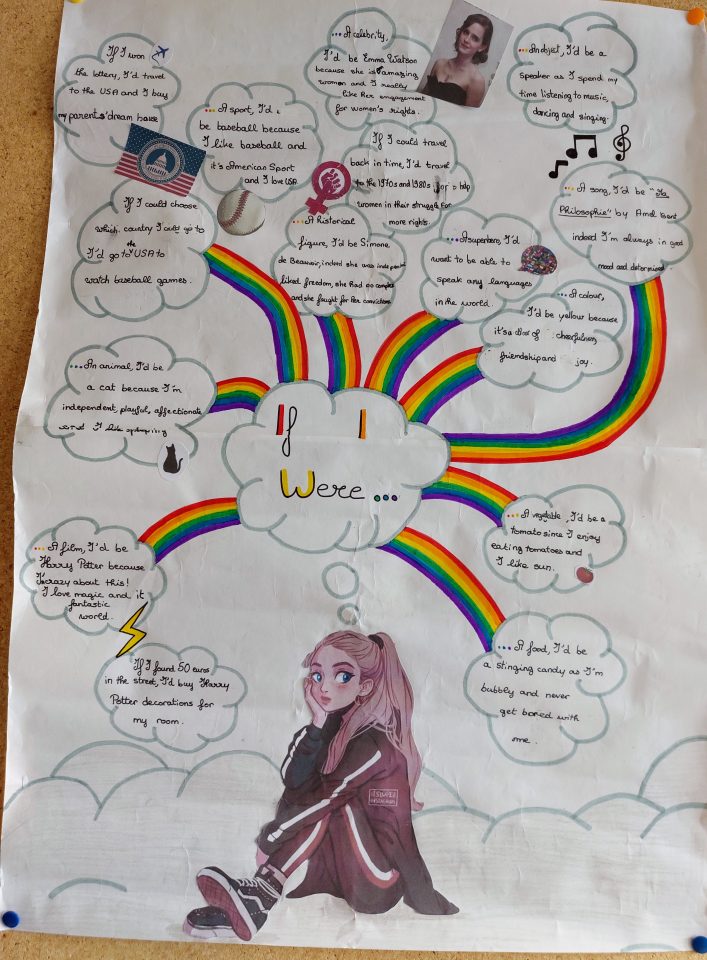 If I won
the lottery, I'd travel
to the USA and I buy
my parents' dream house
... A sport, I'd
be baseball because
I like baseball and
it's American Sport
and I love USA
... A celebrity,
I'd be Emma Watson
because she is amazing
women and I really
like her engagement
for women's rights.
... An object, I'd be a
speaker as I spend my
time listening to music,
dancing and singing.
If I could travel
back in time, I'd travel
to the 1970s and 1980s to help
women in their struggle for
more rights.
If I could choose
which country I could go to
I'd go to the USA to
watch baseball games.
... A historical
figure, I'd be Simone
de Beauvoir, indeed she was
liked freedom, she had no
and she fought for her convictions
... A superhero, I'd
want to be able to
speak any languages
in the world.
... A song, I'd be "La
Philosophie" by Amel Bent
indeed I'm always in good
mood and determined
... A colour,
I'd be yellow because
it's a of cheerfulness,
friendship and joy.
... An animal, I'd be
a cat because I'm
independent, playful, affectionate
and I like
If I
Were ...
... A film, I'd be
Harry Potter because
I'm crazy about this!
I love magic and it
fantastic
world.
If I found 50 euros
in the street, I'd buy Harry
Potter decorations for
my room.
... A vegetable, I'd be a
tomato since I enjoy
eating tomatoes and
I like sun.
... A food, I'd be
a stinging candy as I'm
bubbly and never
get bored with
me.